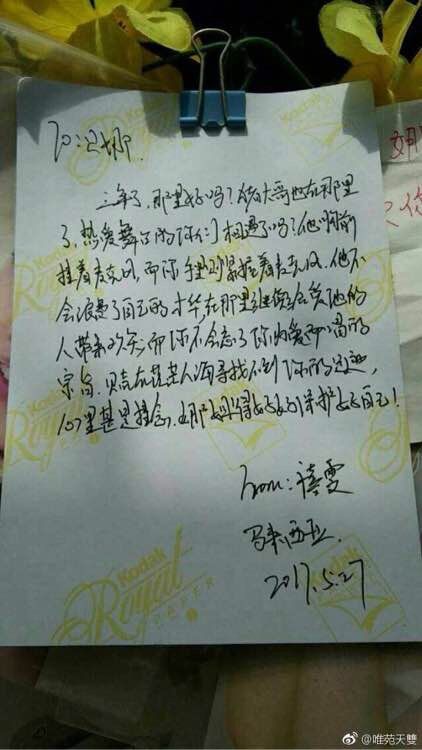 To:贝娜.
三年了,那里好吗?大哥也在那里
了,热爱舞台的你们相遇了吗?他胸前
挂着麦克风,而你手里则紧握着麦克风.他不
会浪费了自己的才华,在那里继续给爱他的
人带来欢乐,而你不会忘了你为爱而唱的
宗旨.贝壳在茫茫人海寻找不到你的足迹,
心里甚是挂念.娜得好好的保护好自己!
from:禧雯
马来西亚.
2017.5.27
Kodak
Royal
PAPER
Kodak
@唯苑天雙